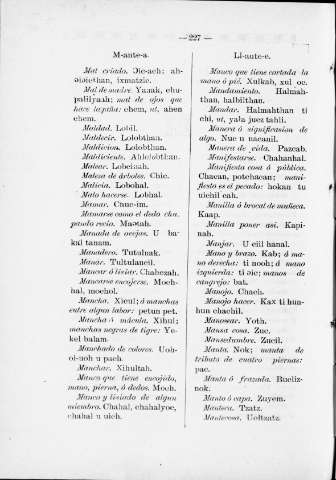 — 227 —
M-ante-a.
Mal criado. Ɔic-ach: ah-
ɔiɔiethan, ixmatzic.
Mal de madre. Yanak, chu-
palilyaah; mal de ojos que
hace lagaña: chem, ut, ahen
chem.
Maldad. Lobil.
Maldecir. Lolobthan.
Maldicion. Lolobthan.
Maldiciente. Ahlolobthan.
Malear. Lobcizah.
Maleza de árboles. Chic.
Malicia. Lobohal.
Malo hacerse. Lobhal.
Mamar. Chuc-im.
Mamarse como el dedo chu-
pando recio. Maɔtah.
Manada de ovejas. U ba-
kal tanam.
Manadero. Tutulnak.
Manar. Tultulancil.
Mancar ó lisiar. Chabezah.
Mancarse encojerse. Moch-
hal, mochol.
Mancha. Xicul; á manchas
entre algun labor: petun pet.
Mancha ó mácula. Xihul;
manchas negras de tigre: Ye-
kel balam.
Manchado de colores. Uoh-
ol-uoh u pach.
Manchar. Xihultah.
Manco que tiene encojido,
mano, pierna, ó dedos. Moch.
Manco y lisiado de algun
miembro. Chahal, chahalyoc,
chahal u uich.
Ll-ante-e.
Manco que tiene cortada la
mano ó pié. Xulkab, xul oc.
Mandamiento. Halmah-
than, halbilthan.
Mandar. Halmahthan ti
chi, ut, yala juez tabli.
Manera ó significacion de
algo. Nuc u nucanil.
Manera de vida. Pazcab.
Manifestarse. Chahanhal.
Manifiesta cosa ó pública.
Chacan, potchacan; mani-
fiesto es el pecado: hokan tu
uichil cah.
Manilla ó brocal de muñeca.
Kaap.
Manilla poner así. Kapi-
nah.
Manjar. U ciil hanal.
Mano y brazo. Kab; á ma-
no derecha: ti nooh; á mano
izquierda: ti ɔic; manos de
cangrejo: bat.
Manojo. Chach.
Manojo hacer. Kax ti hun-
hun chachil.
Manosear. Yoth.
Mansa cosa. Zuc.
Mansedumbre. Zucil.
Manta. Nok; manta de
tributo de cuatro piernas:
pac.
Manta ó frazada. Bucliz-
nok.
Manto ó capa. Zuyem.
Manteca. Tzatz.
Mantecosa. Uoltzatz.